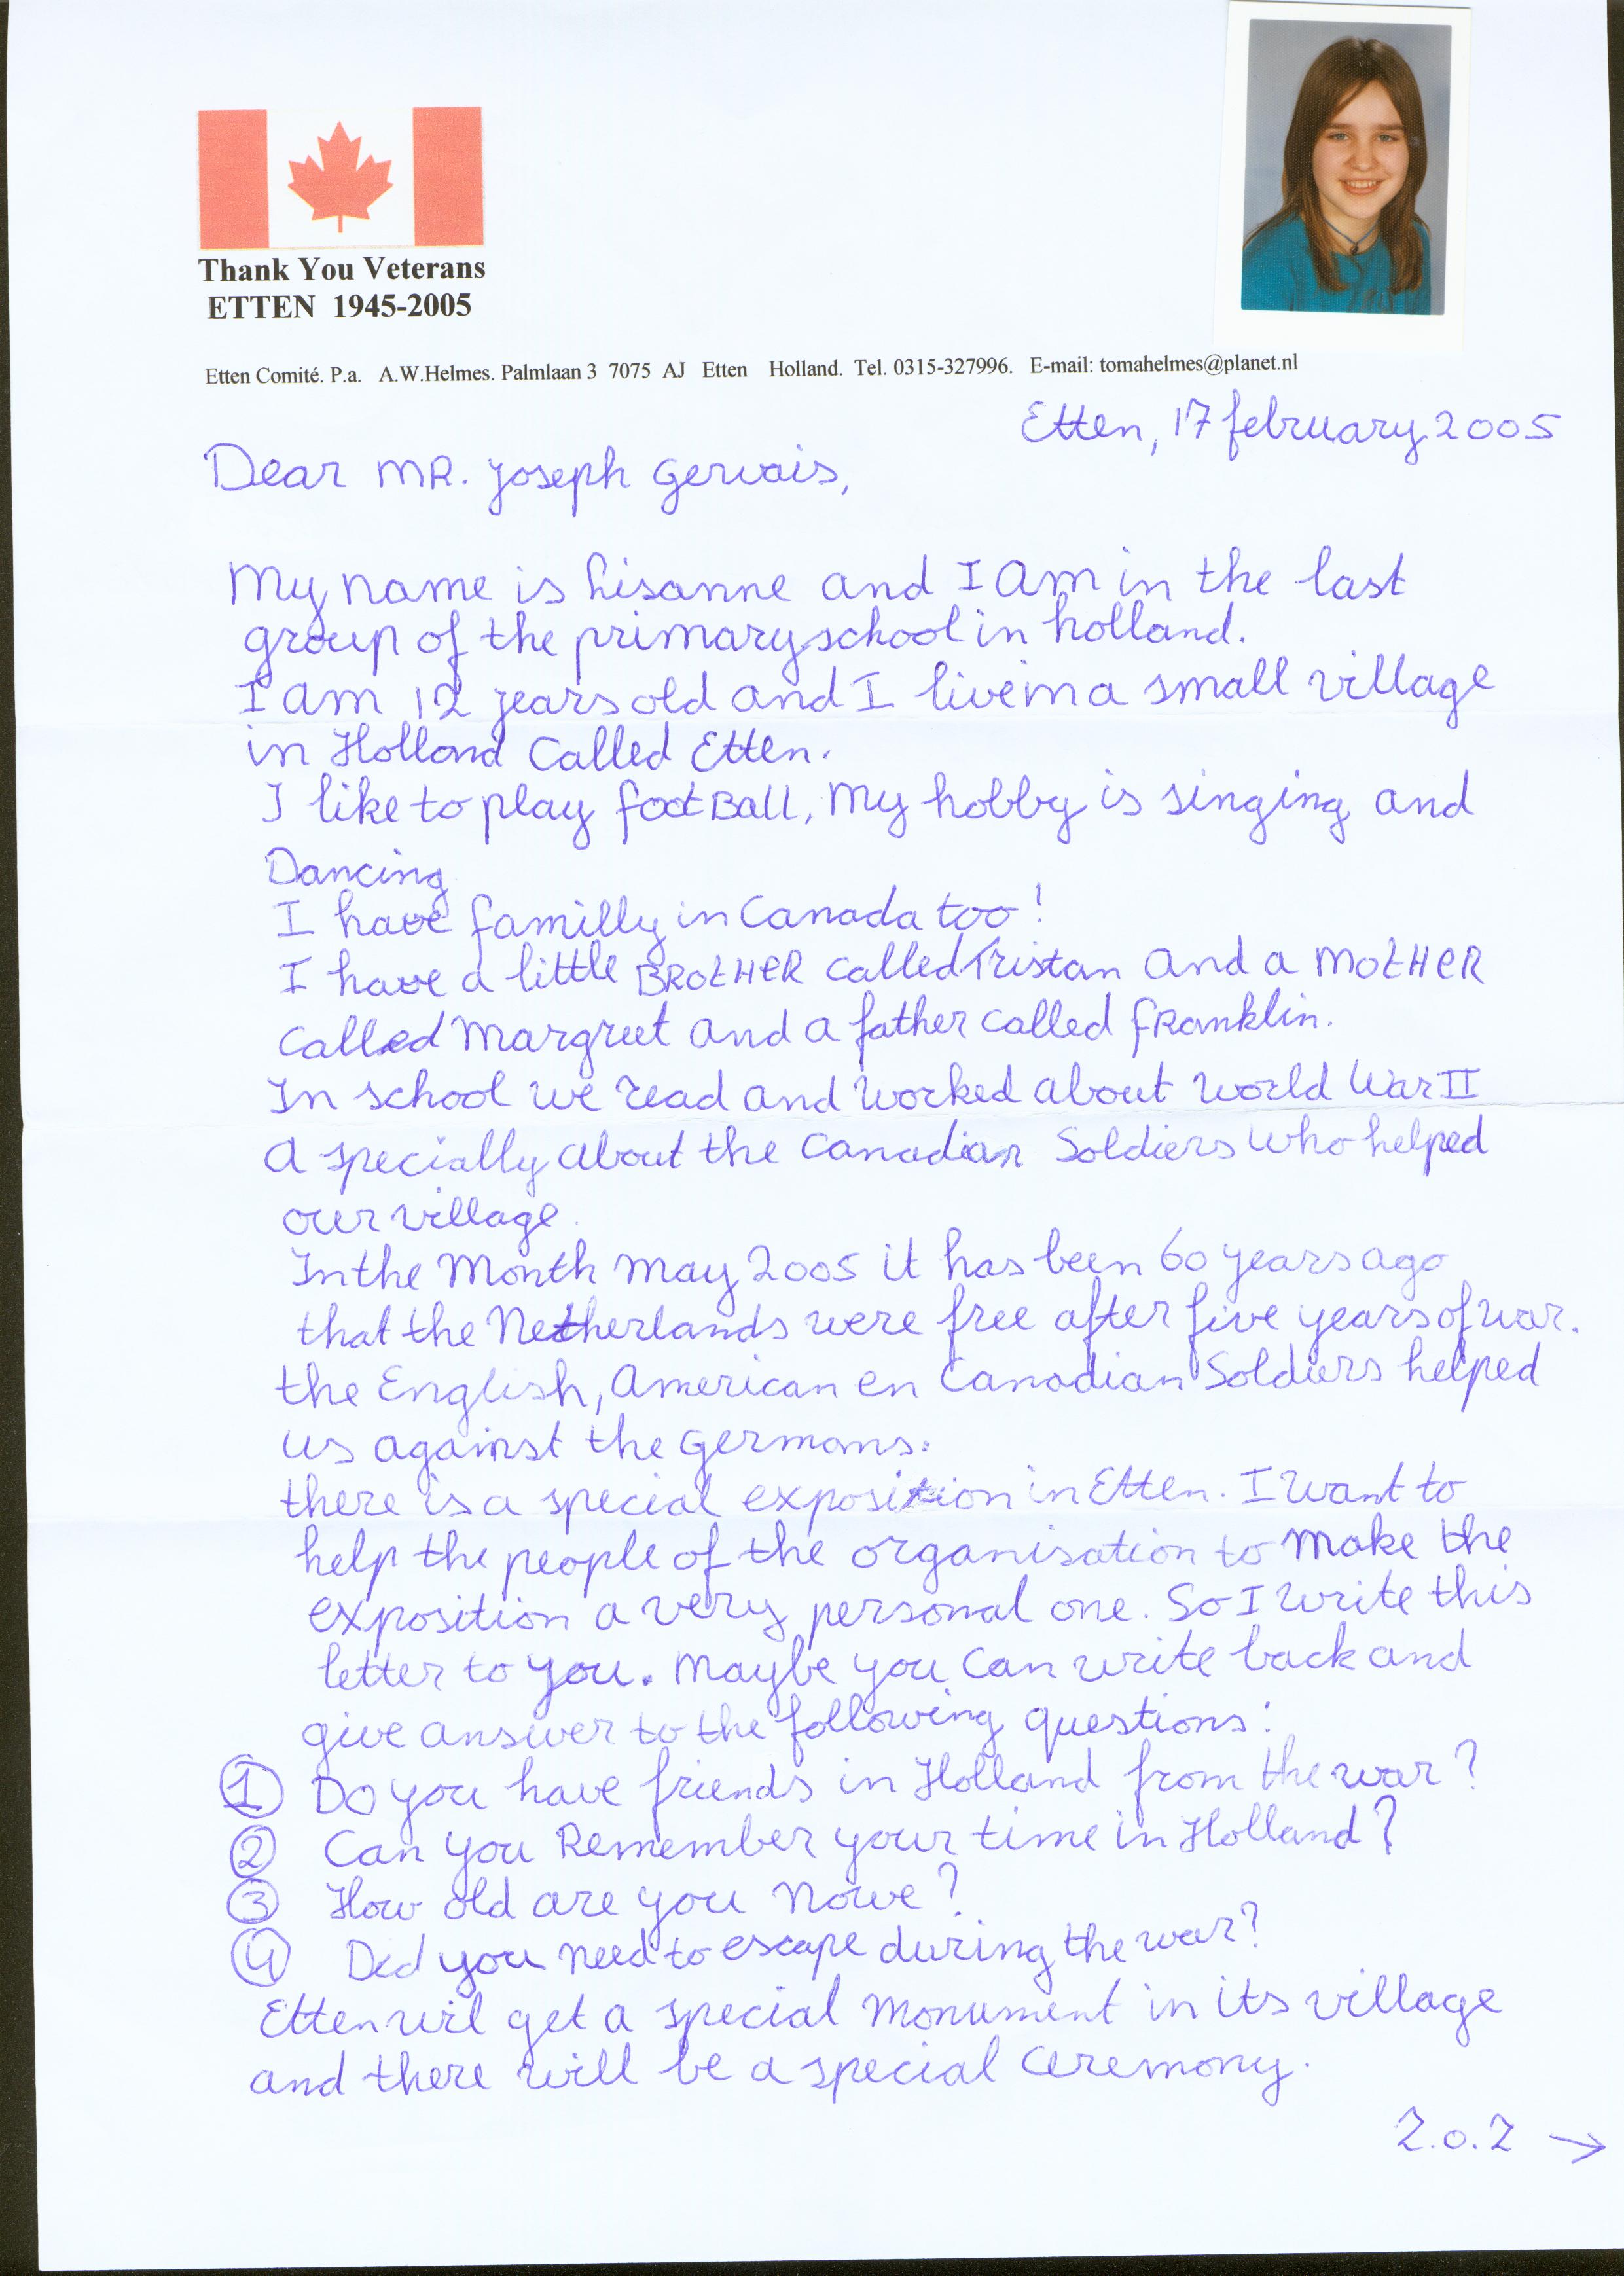 Thank You Veterans
ETTEN 1945-2005
Etten Comité. P.a. A.W.Helmes. Palmlaan 3 7075 AJ Etten Holland. Tel. 0315-327996. E-mail: tomahelmes@planet.nl
Etten, 17 february 2005
Dear MR. Joseph Gervais,
My name is Lisanne and I am in the last
group of the primary school in holland.
I am 12 years old and I live in a small village
in Holland Called Etten.
I like to play footBall, My hobby is singing and
Dancing
I have familly in Canada too!
I have a little BROtHER called Tristan and a MOtHER
Called Margreet and a father called fRanklin.
In school we read and worked about world War II
a specially about the Canadian Soldiers who helped
our village.
In the Month May 2005 it has been 60 years ago
that the Netherlands were free after five years of war.
the English, American en Canadian Soldiers helped
us against the Germans.
there is a special exposition in Etten. I want to
help the people of the organisation to make the
exposition a very personal one. So I write this
letter to you. Maybe you can write back and
give answer to the following questions:
① Do you have friends in Holland from the war?
② Can you Remember your time in Holland?
③ How old are you Nowe?
④ Did you need to escape during the war?
Etten wil get a special Monument in its village
and there will be a special Ceremony.
Z.O.Z →